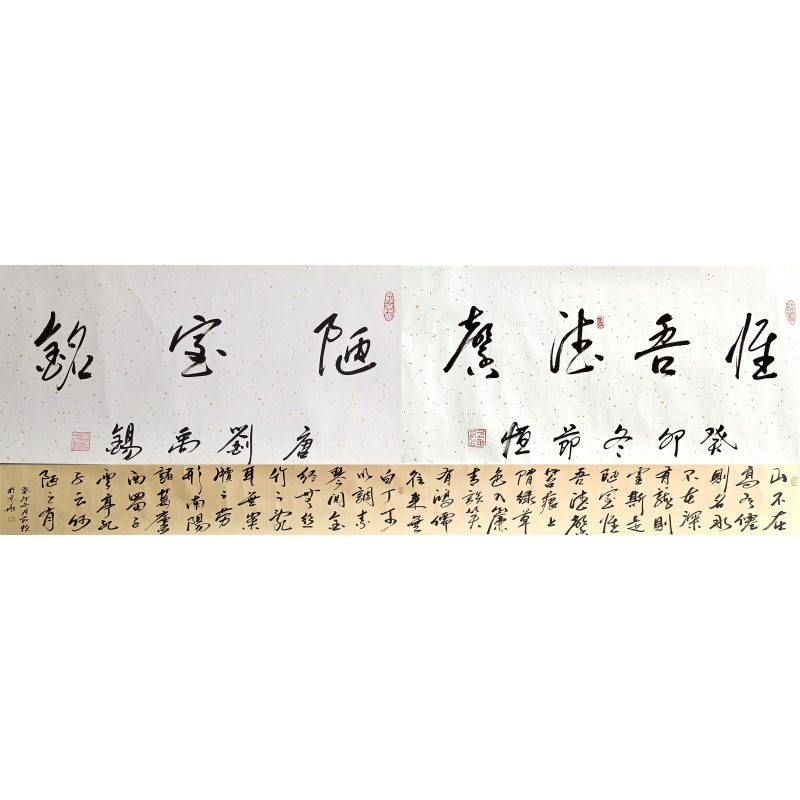 惟吾德馨
癸卯冬節恒
陋室銘
唐劉禹錫
山不在
高有僊
則名水
不在深
有龍則
靈斯是
陋室惟
吾德馨
苔痕上
階綠草
色入簾
青談笑
有鴻儒
往來無
白丁可
以調素
琴閱金
經無絲
竹之亂
耳無案
牘之勞
形南陽
諸葛廬
西蜀子
雲亭孔
子云何
陋之有
癸卯冬月節恒